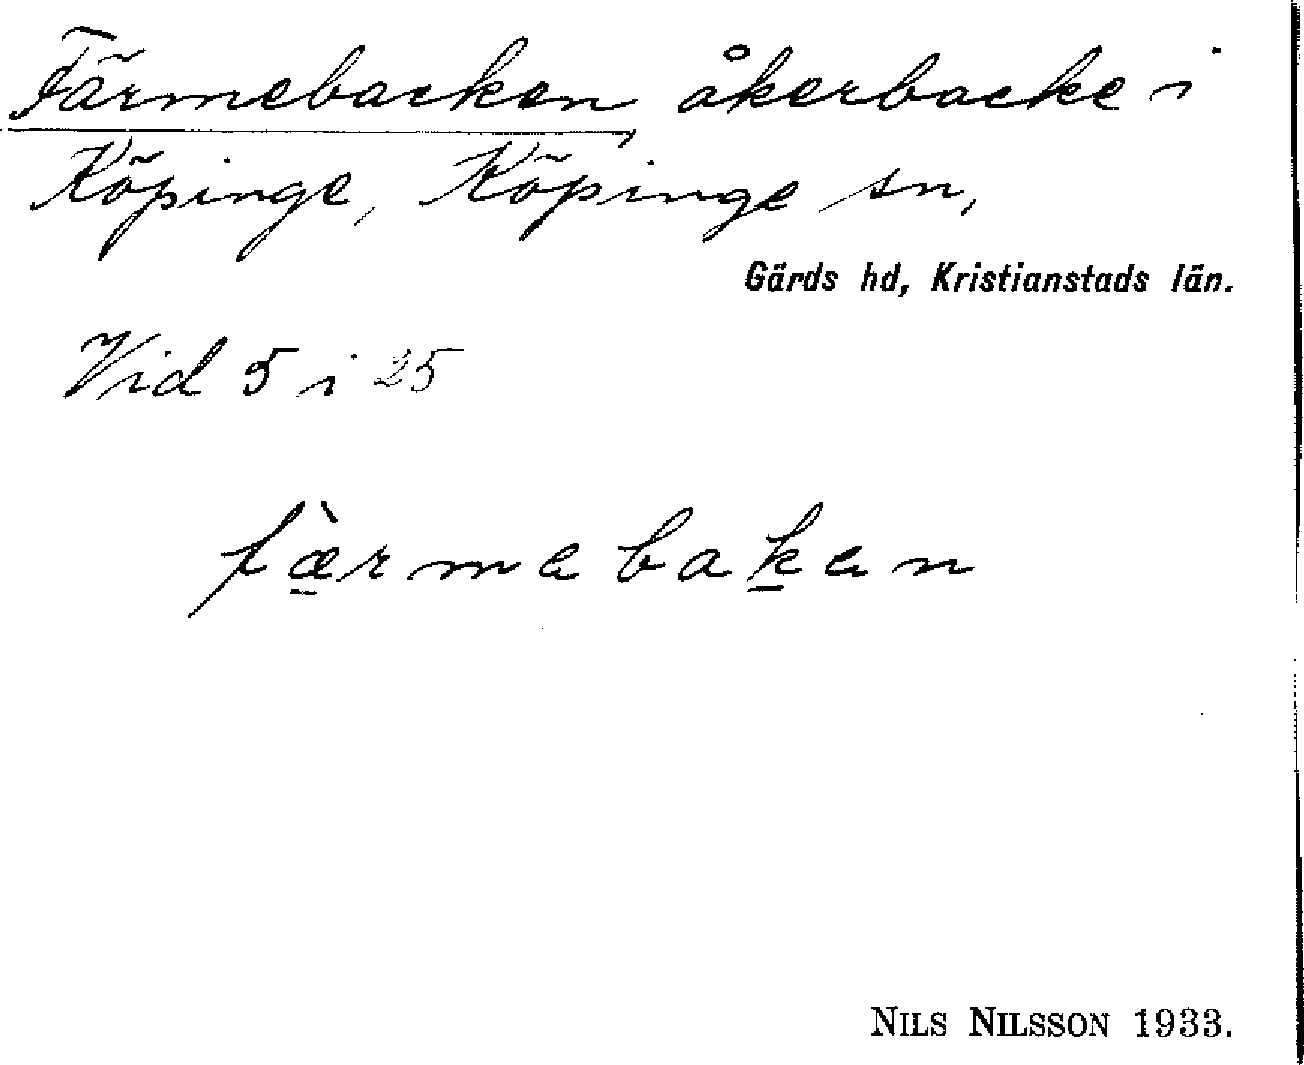 Färmebacken, åkerbacke i
Köpinge, Köpinge sn,
Gärds hd, Kristianstads län.
Vid 5 i 25
fæ̀rmebaken
NILS NILSSON 1933.